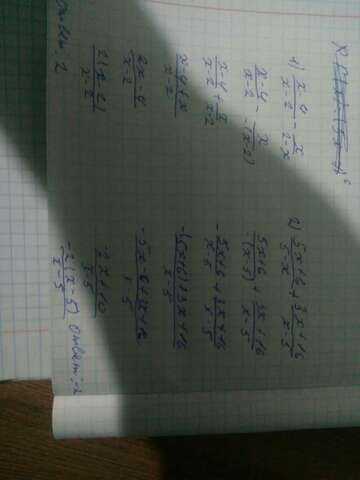 1) \frac{x-4}{x-2} - \frac{x}{2-x}
\frac{x-4}{x-2} - \frac{x}{-(x-2)}
\frac{x-4}{x-2} + \frac{x}{x-2}
\frac{x-4+x}{x-2}
\frac{2x-4}{x-2}
\frac{2(x-2)}{x-2}
ответ: 2
2) \frac{5x+6}{5-x} + \frac{3x+16}{x-5}
\frac{5x+6}{-(x-5)} + \frac{3x+16}{x-5}
-\frac{5x+6}{x-5} + \frac{3x+16}{x-5}
\frac{-(5x+6)+3x+16}{x-5}
\frac{-5x-6+3x+16}{x-5}
\frac{-2x+10}{x-5}
\frac{-2(x-5)}{x-5} ответ: -2